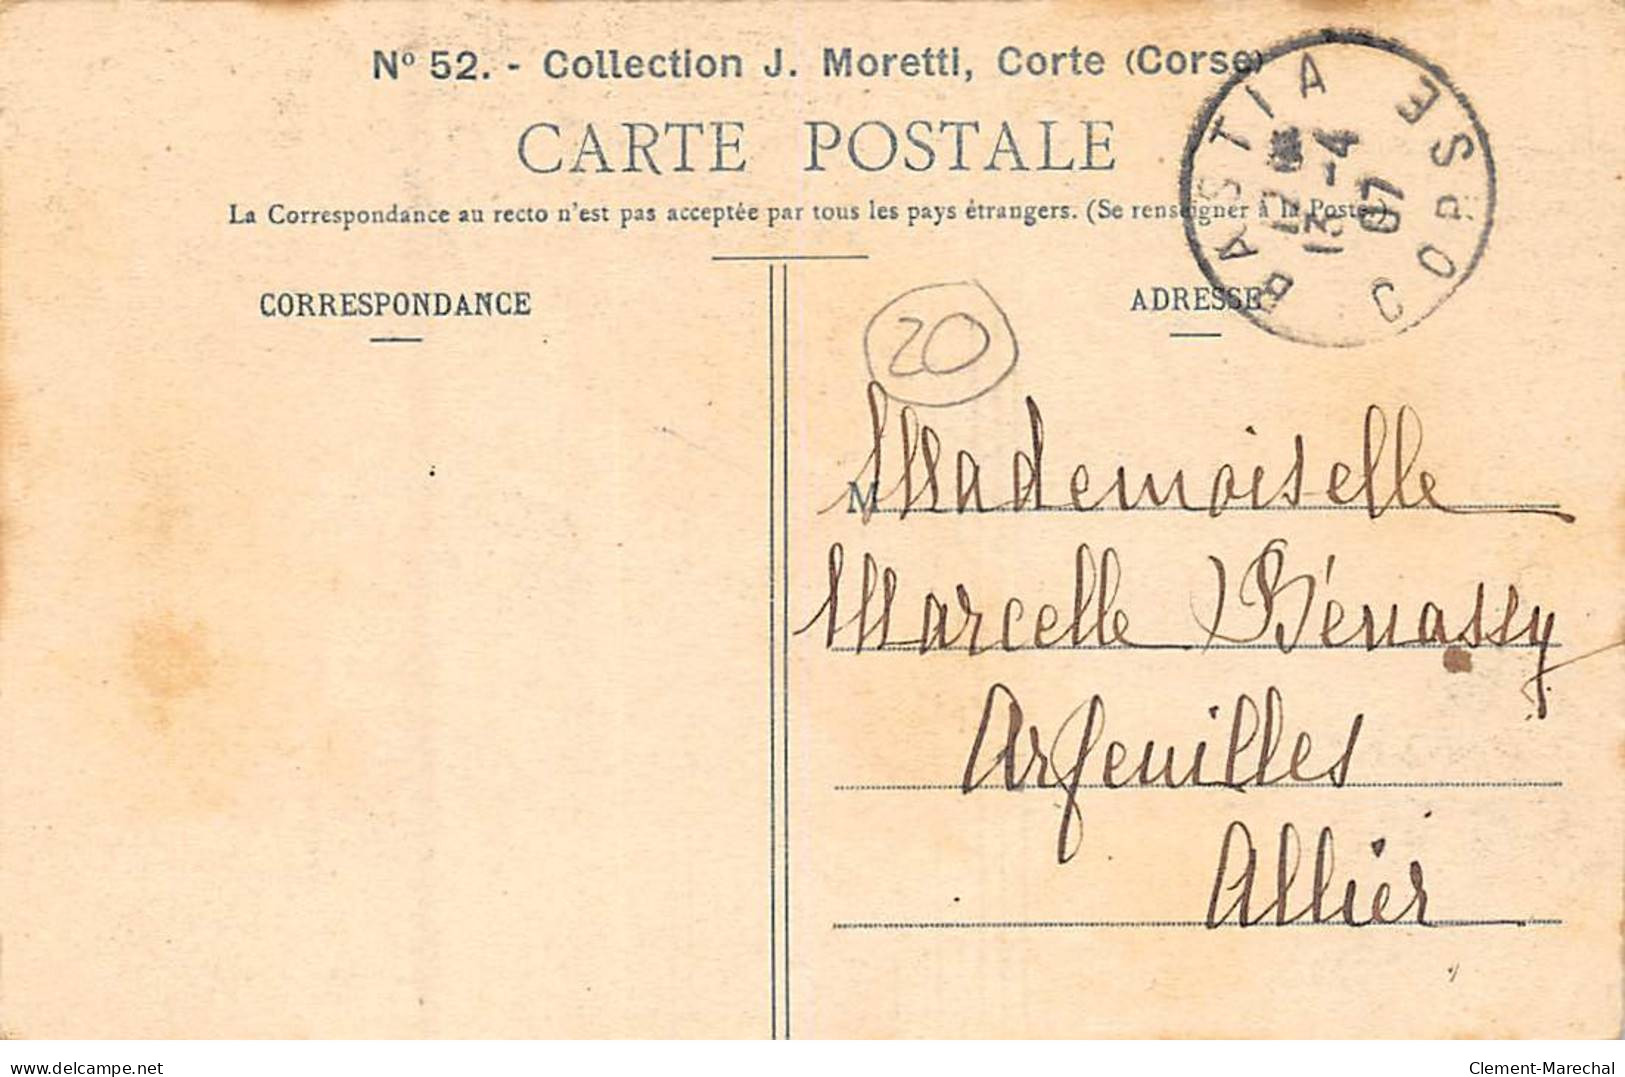 Nº 52. - Collection J. Moretti, Corte (Corse)
CARTE POSTALE
La Correspondance au recto n'est pas acceptée par tous les pays étrangers. (Se renseigner à la Poste)
CORRESPONDANCE
ADRESSE
BASTIA
13 -4
07
CORSE
20
M
Mademoiselle
Marcelle Bénassy
Arfeuilles
Allier
www.delcampe.net
Clement-Marechal